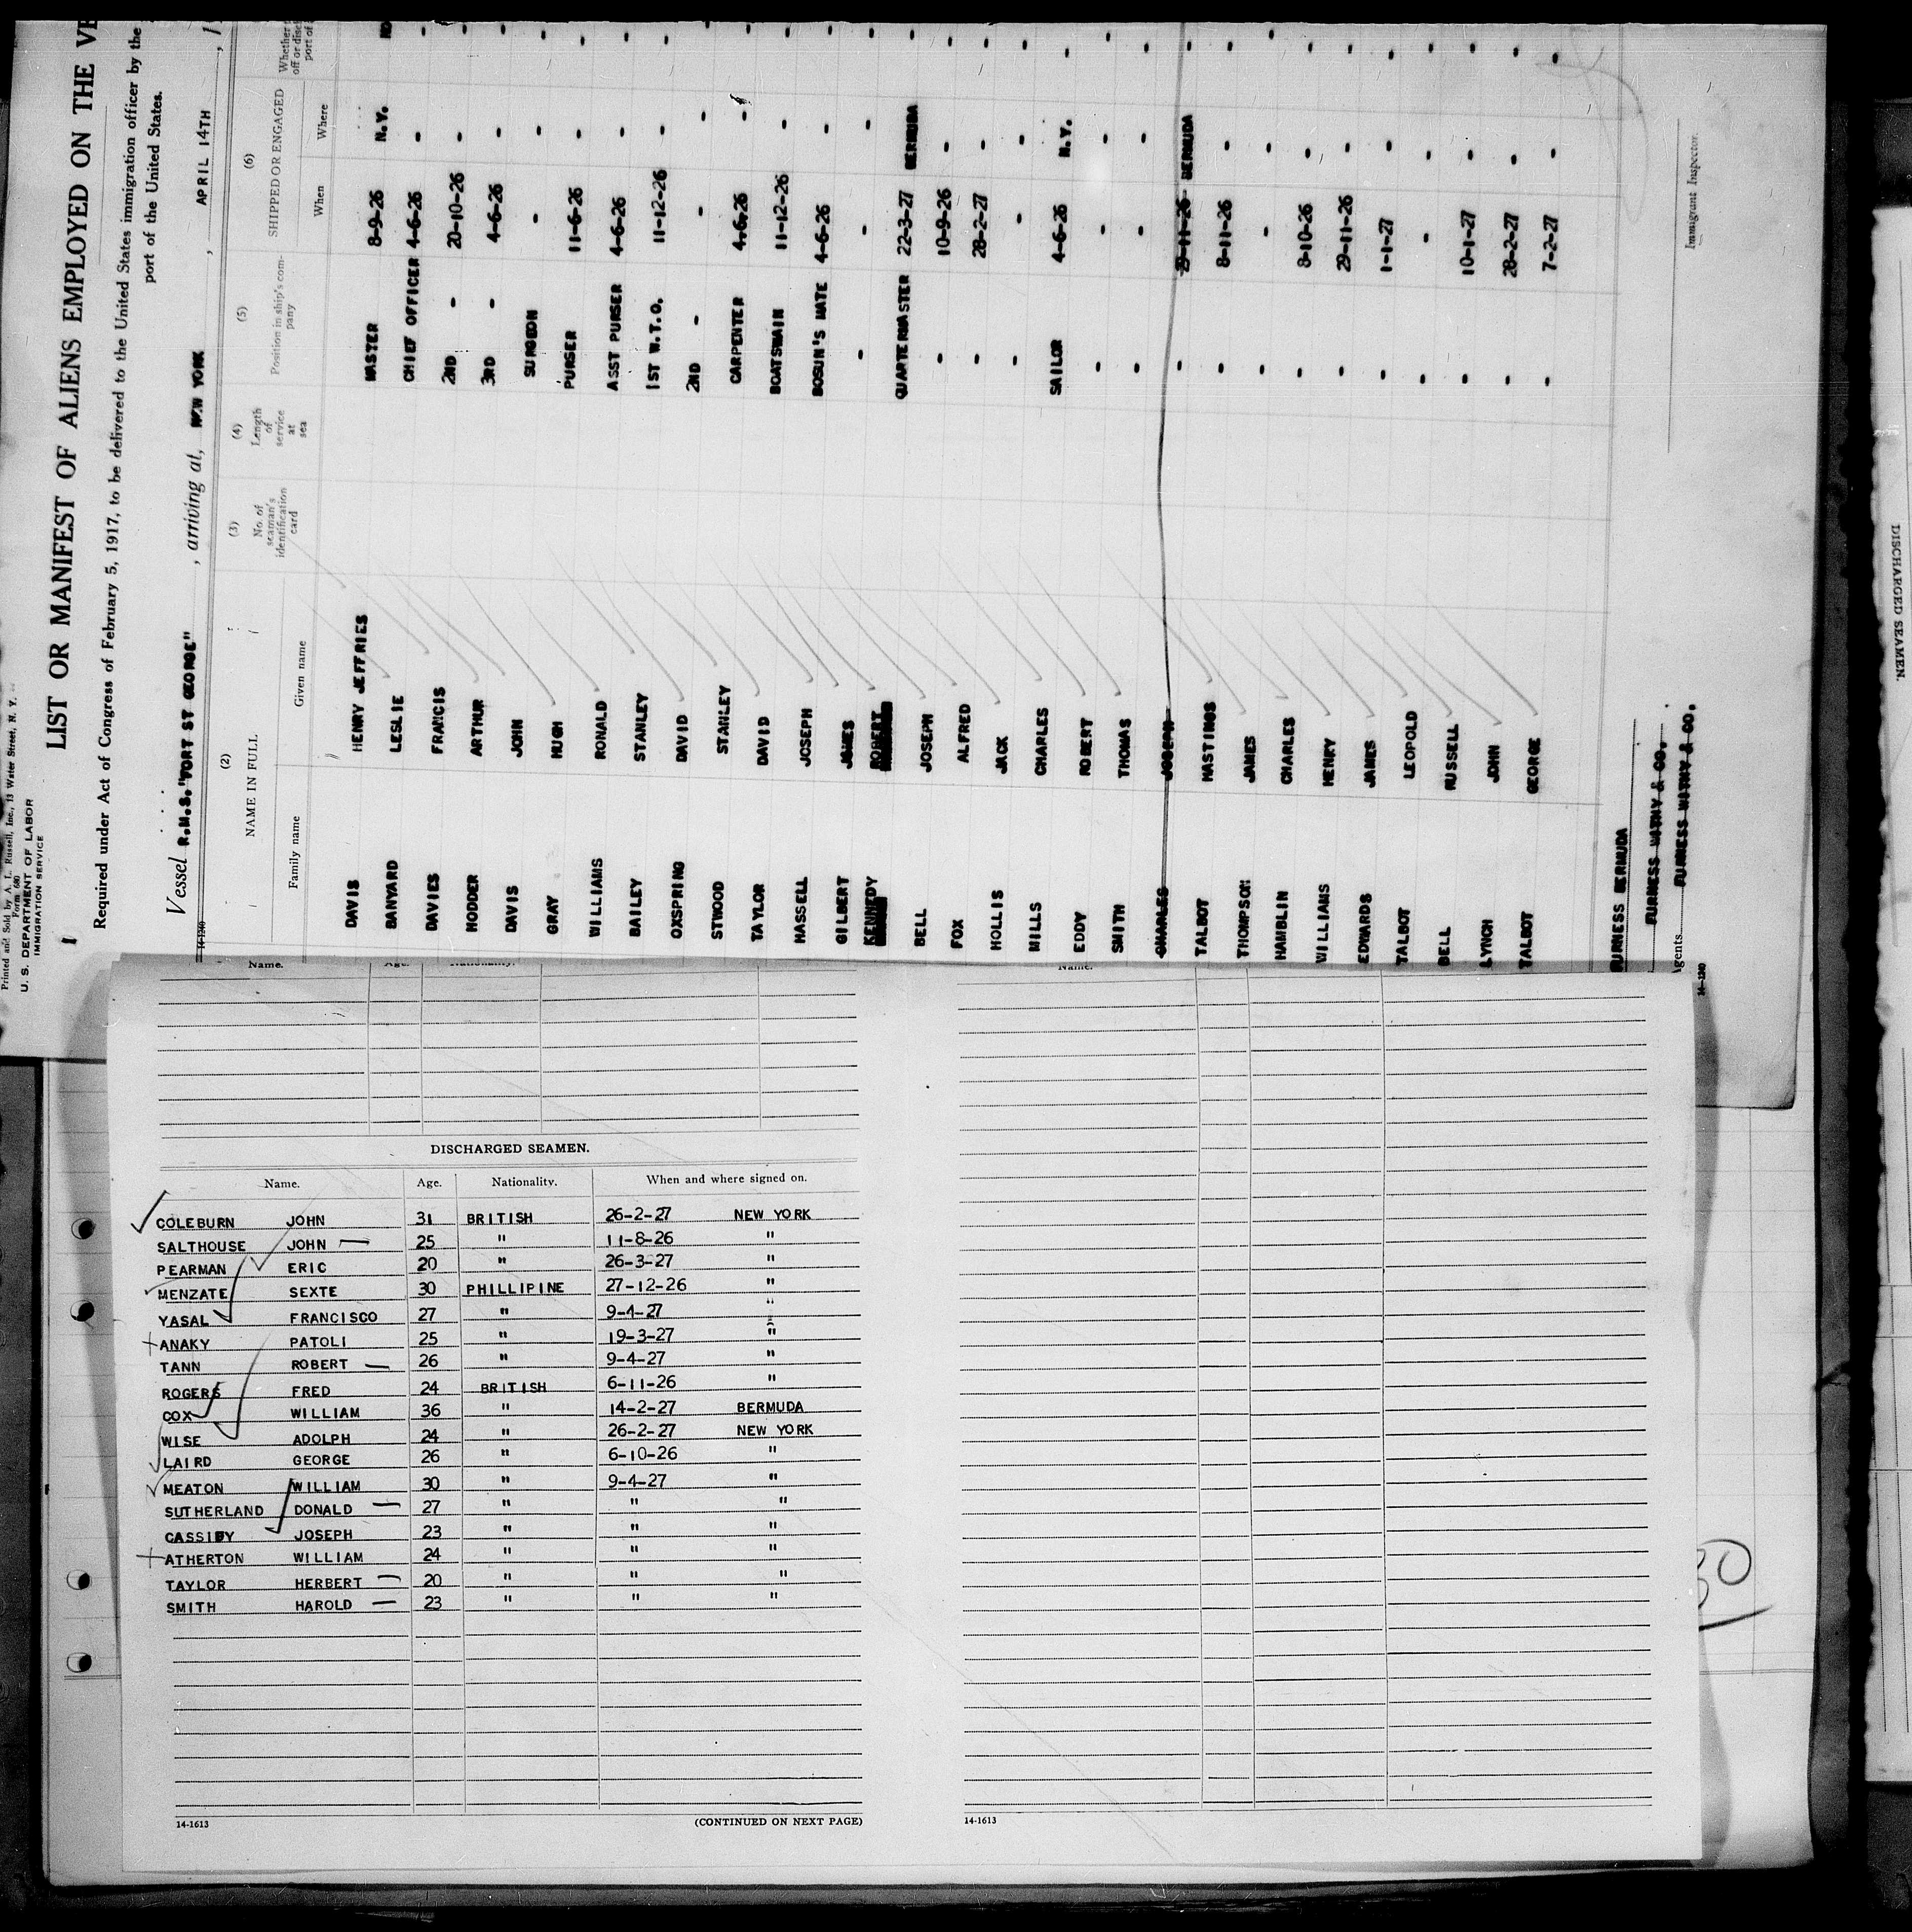 Printed and Sold by A. L. Russell, Inc., 13 Water Street, N. Y.
Form 680
U. S. DEPARTMENT OF LABOR
IMMIGRATION SERVICE
1
LIST OR MANIFEST OF ALIENS EMPLOYED ON THE
Required under Act of Congress of February 5, 1917, to be delivered to the United States immigration officer by the
port of the United States.
Vessel R.M.S. "FORT ST GEORGE" , arriving at, NEW YORK , APRIL 14TH , 1
14-1240
(2) (3) (4) (5) (6)
NAME IN FULL No. of seaman's identification card Length of service at sea Position in ship's company SHIPPED OR ENGAGED Whether
Family name Given name When Where
DAVIS HENRY JEFFRIES MASTER 8-9-26 N.Y.
BANYARD LESLIE CHIEF OFFICER 4-6-26 -
DAVIES FRANCIS 2ND - 20-10-26 -
HODDER ARTHUR 3RD - 4-6-26 -
DAVIS JOHN SURGEON - -
GRAY HUGH PURSER 11-6-26 -
WILLIAMS RONALD ASST PURSER 4-6-26 -
BAILEY STANLEY 1ST W.T.O. 11-12-26 -
OXSPRING DAVID 2ND - - -
STWOOD STANLEY CARPENTER 4-6-26 -
TAYLOR DAVID BOATSWAIN 11-12-26 -
HASSELL JOSEPH BOSUN'S MATE 4-6-26 -
GILBERT JAMES - - -
KENNEDY ROBERT QUARTERMASTER 22-3-27 BERMUDA
BELL JOSEPH - 10-9-26 -
FOX ALFRED - 28-2-27 -
HOLLIS JACK - - -
MILLS CHARLES SAILOR 4-6-26 N.Y.
EDDY ROBERT - - -
SMITH THOMAS - - -
CHARLES JOSEPH - 29-11-26 BERMUDA
TALBOT HASTINGS - 8-11-26 -
THOMPSON JAMES - - -
HAMBLIN CHARLES - 8-10-26 -
WILLIAMS HENRY - 29-11-26 -
EDWARDS JAMES - 1-1-27 -
TALBOT LEOPOLD - - -
BELL RUSSELL - 10-1-27 -
LYNCH JOHN - 28-2-27 -
TALBOT GEORGE - 7-2-27 -
FURNESS BERMUDA
FURNESS WITHY & CO.
Agents FURNESS WITHY & CO.
Immigrant Inspector.
14-1240
Name. Age. Nationality. Name.
DISCHARGED SEAMEN.
Name. Age. Nationality. When and where signed on.
COLEBURN JOHN 31 BRITISH 26-2-27 NEW YORK
SALTHOUSE JOHN 25 " 11-8-26 "
PEARMAN ERIC 20 " 26-3-27 "
MENZATE SEXTE 30 PHILLIPINE 27-12-26 "
YASAL FRANCISCO 27 " 9-4-27 "
ANAKY PATOLI 25 " 19-3-27 "
TANN ROBERT 26 " 9-4-27 "
ROGERS FRED 24 BRITISH 6-11-26 "
COX WILLIAM 36 " 14-2-27 BERMUDA
WISE ADOLPH 24 " 26-2-27 NEW YORK
LAIRD GEORGE 26 " 6-10-26 "
MEATON WILLIAM 30 " 9-4-27 "
SUTHERLAND DONALD 27 " " "
CASSIDY JOSEPH 23 " " "
ATHERTON WILLIAM 24 " " "
TAYLOR HERBERT 20 " " "
SMITH HAROLD 23 " " "
14-1613 (CONTINUED ON NEXT PAGE) 14-1613
DISCHARGED SEAMEN.